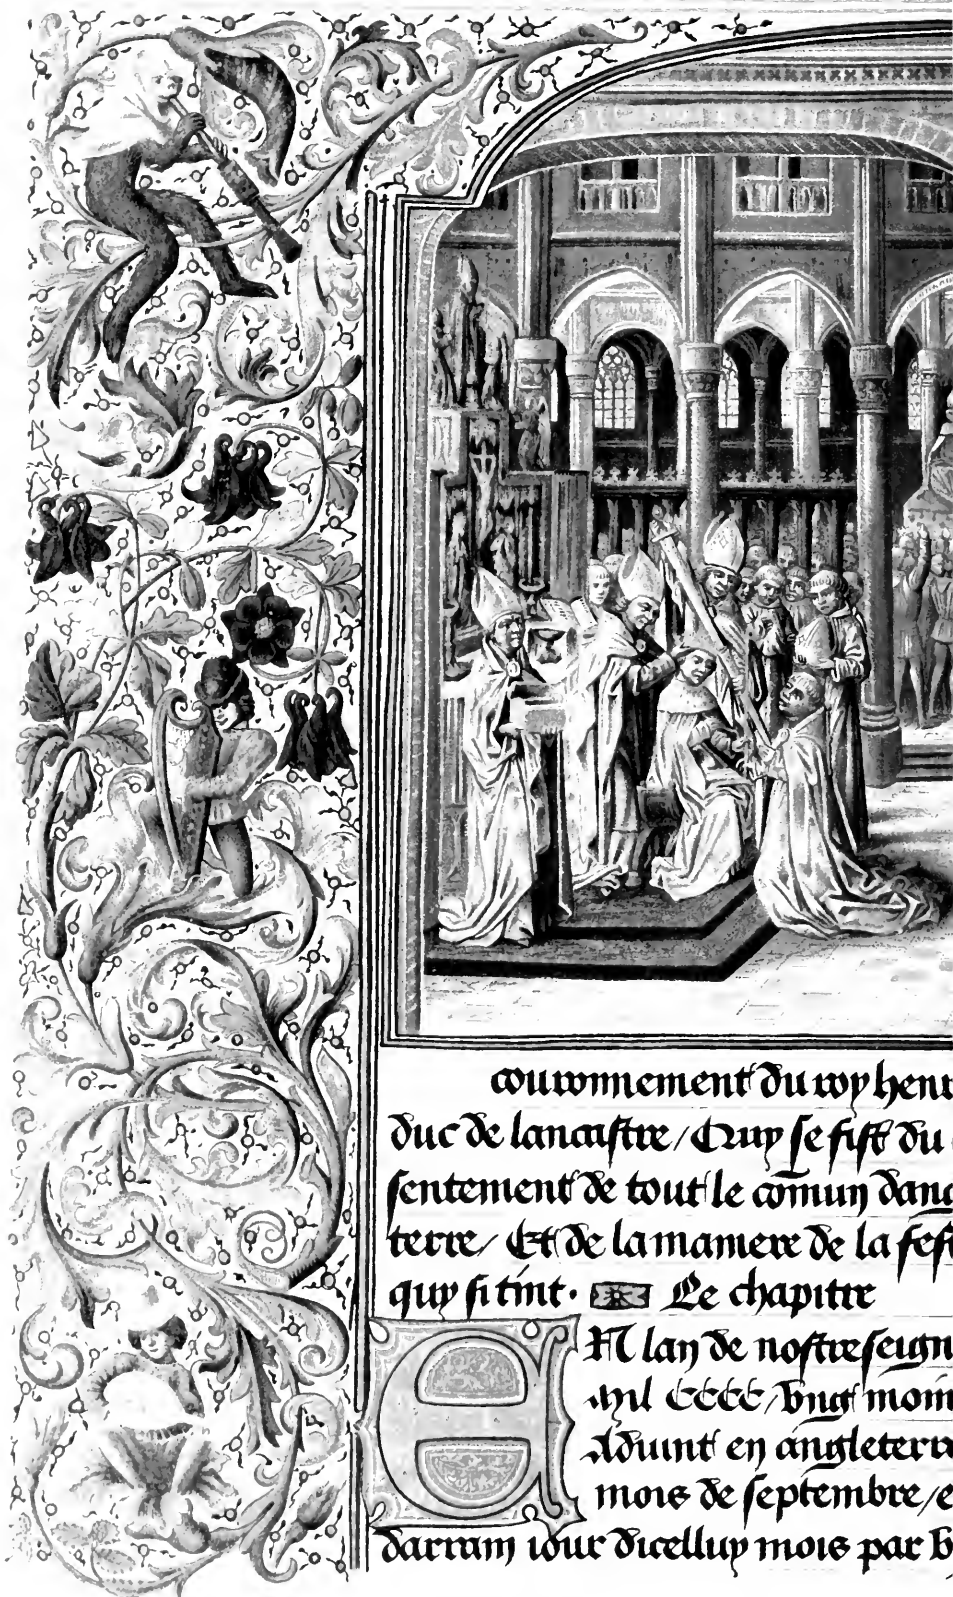 couronnement du roy henr
duc de lancastre / Quy se fist du
sentement de tout le comun dang
terre / Et de la maniere de la fest
quy si tint · Le chapitre
EN lan de nostre seign
Mil CCCC / vngt moin
Aduint en angleterre
mois de septembre / e
darrain iour dicelluy mois par b